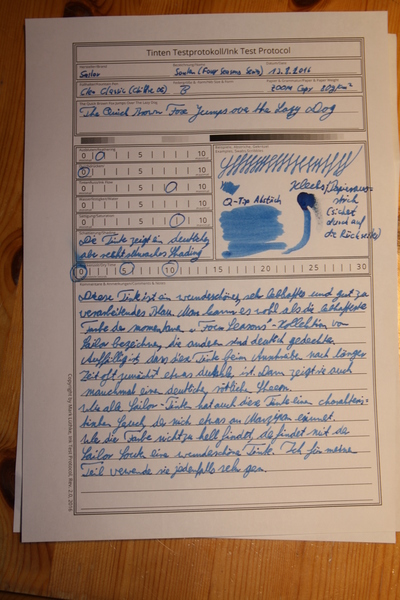 Tinten Testprotokoll/Ink Test Protocol
Sailor
Souten (Four Seasons Serie)
12.2.2016
B
The Quick Brown Fox Jumps over the Lazy Dog
0 10
0 10
0 10
0 10
0 10
Q-Tip Abstich
Klecks/Papieraus-
strich
(sichert
durch auf
die Rückseite)
Die Tinte zeigt ein deutliches
aber recht schwaches Shading
0 5 10 15 20 25 30
Diese Tinte ist ein wunderschönes, sehr lebhaftes und gut zu
verarbeitendes Blau. Man kann es wohl als die lebhafteste
Farbe der momentanen "Four Seasons"-Kollektion von
Sailor bezeichnen, die anderen sind deutlich gedeckter.
Auffällig ist, dass diese Tinte beim Ausmalen nach längerer
Zeit oft zunächst etwas dunkler ist. Dann zeigt sie auch
manchmal einen deutlichen rötlichen Sheen.
Wie alle Sailor-Tinten hat auch diese Tinte einen charakteris-
tischen Geruch, der mich etwas an Marzipan erinnert.
Wer die Farbe nicht zu hell findet, der findet mit der
Sailor Souten eine wunderschöne Tinte. Ich für meinen
Teil verwende sie jedenfalls sehr gern.